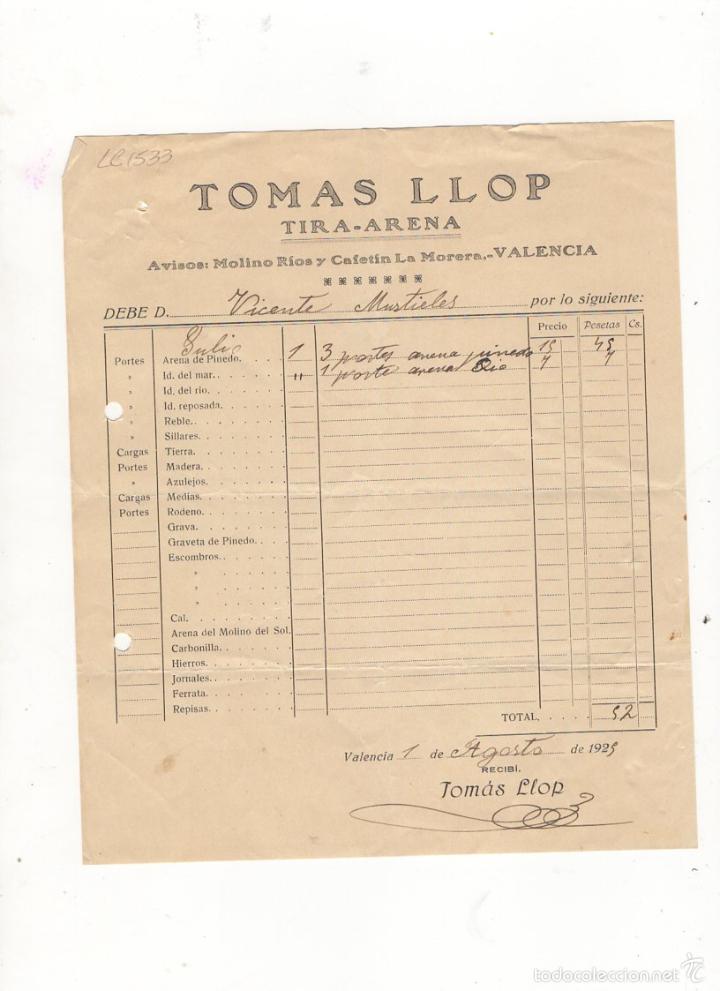 LC1533
TOMAS LLOP
TIRA-ARENA
Avisos: Molino Ríos y Cafetín La Morera,-VALENCIA
DEBE D. Vicente Mustieles por lo siguiente:
Precio Pesetas Cs.
Julio
Portes Arena de Pinedo. . . . 1 3 portes arena pinedo 15 45
" Id. del mar. . . . . " 1 porte arena Rio 7 7
" Id. del río. . . . .
" Id. reposada. . . . .
" Reble. . . . . . .
" Sillares. . . . . . .
Cargas Tierra. . . . . . .
Portes Madera. . . . . . .
" Azulejos. . . . . . .
Cargas Medias. . . . . . .
Portes Rodeno. . . . . . .
Grava. . . . . . .
Graveta de Pinedo. . . .
Escombros. . . . . .
" . . . . .
" . . . . .
" . . . . .
Cal. . . . . . . .
Arena del Molino del Sol.
Carbonilla. . . . . .
Hierros. . . . . . .
Jornales. . . . . . .
Ferrata. . . . . . .
Repisas. . . . . . .
TOTAL. . . . . 52
Valencia 1 de Agosto de 1925
RECIBÍ,
Tomás Llop
todocoleccion.net